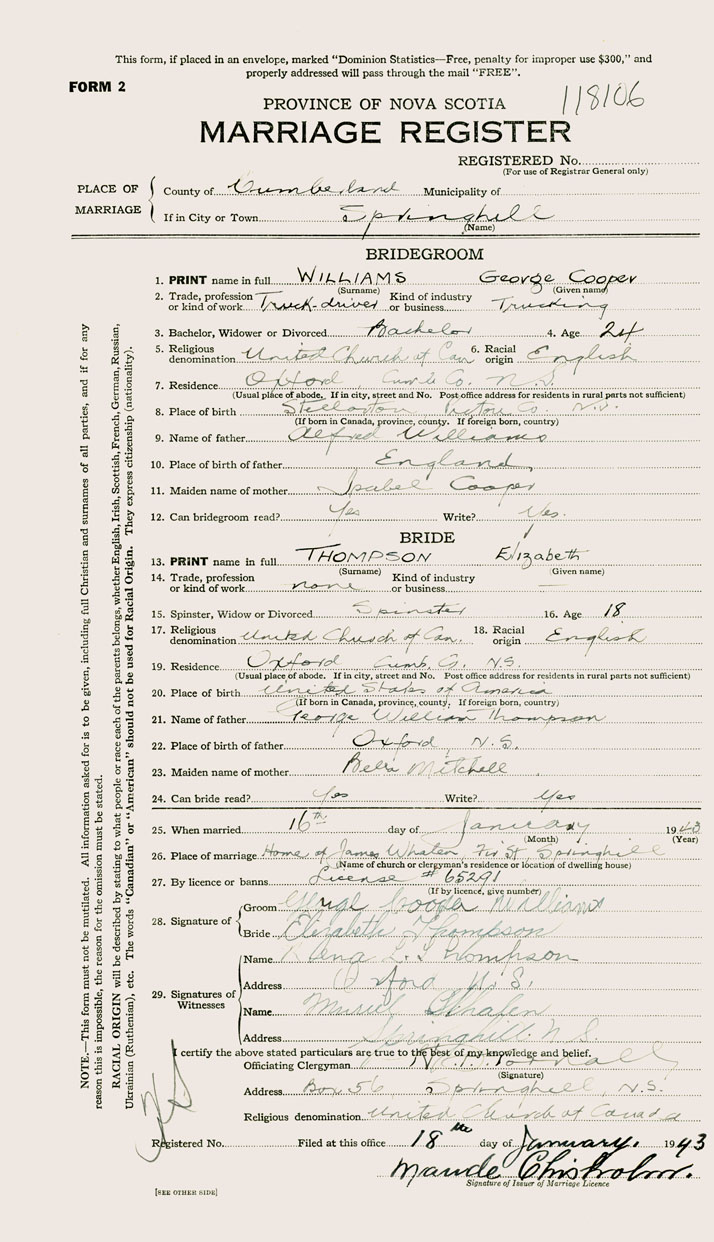 This form, if placed in an envelope, marked "Dominion Statistics—Free, penalty for improper use $300," and
properly addressed will pass through the mail "FREE".
FORM 2
118106
PROVINCE OF NOVA SCOTIA
MARRIAGE REGISTER
REGISTERED No.
(For use of Registrar General only)
PLACE OF MARRIAGE
County of Cumberland Municipality of
If in City or Town Springhill
(Name)
BRIDEGROOM
1. PRINT name in full WILLIAMS George Cooper
(Surname) (Given name)
2. Trade, profession or kind of work Truck-driver Kind of industry or business Trucking
3. Bachelor, Widower or Divorced Bachelor 4. Age 24
5. Religious denomination United Church of Can 6. Racial origin English
7. Residence Oxford, Co. N.S.
(Usual place of abode. If in city, street and No. Post office address for residents in rural parts not sufficient)
8. Place of birth Stellarton Pictou Co. N.S.
(If born in Canada, province, county. If foreign born, country)
9. Name of father Alfred Williams
10. Place of birth of father England
11. Maiden name of mother Isabel Cooper
12. Can bridegroom read? Yes Write? Yes.
BRIDE
13. PRINT name in full THOMPSON Elizabeth
(Surname) (Given name)
14. Trade, profession or kind of work none Kind of industry or business —
15. Spinster, Widow or Divorced Spinster 16. Age 18
17. Religious denomination United Church of Can. 18. Racial origin English
19. Residence Oxford Cumb. Co. N.S.
(Usual place of abode. If in city, street and No. Post office address for residents in rural parts not sufficient)
20. Place of birth United States of America
(If born in Canada, province, county. If foreign born, country)
21. Name of father George William Thompson
22. Place of birth of father Oxford, N.S.
23. Maiden name of mother Mitchell
24. Can bride read? Yes Write? Yes
25. When married 16th day of January 1943
(Month) (Year)
26. Place of marriage Home of James Springhill
(Name of church or clergyman's residence or location of dwelling house)
27. By licence or banns License # 65291
(If by licence, give number)
28. Signature of
Groom George Cooper Williams
Bride Elizabeth Thompson
29. Signatures of Witnesses
Name Thompson
Address Oxford N.S.
Name Muriel
Address Springhill N.S.
I certify the above stated particulars are true to the best of my knowledge and belief.
Officiating Clergyman
(Signature)
Address Box 56, Springhill, N.S.
Religious denomination United Church of Canada
Registered No. Filed at this office 18th day of January. 1943
Maude Chisholm.
Signature of Issuer of Marriage Licence
[SEE OTHER SIDE]
NOTE.—This form must not be mutilated. All information asked for is to be given, including full Christian and surnames of all parties, and if for any
reason this is impossible, the reason for the omission must be stated.
RACIAL ORIGIN will be described by stating to what people or race each of the parents belongs, whether English, Irish, Scottish, French, German, Russian,
Ukrainian (Ruthenian), etc. The words "Canadian" or "American" should not be used for Racial Origin. They express citizenship (nationality).